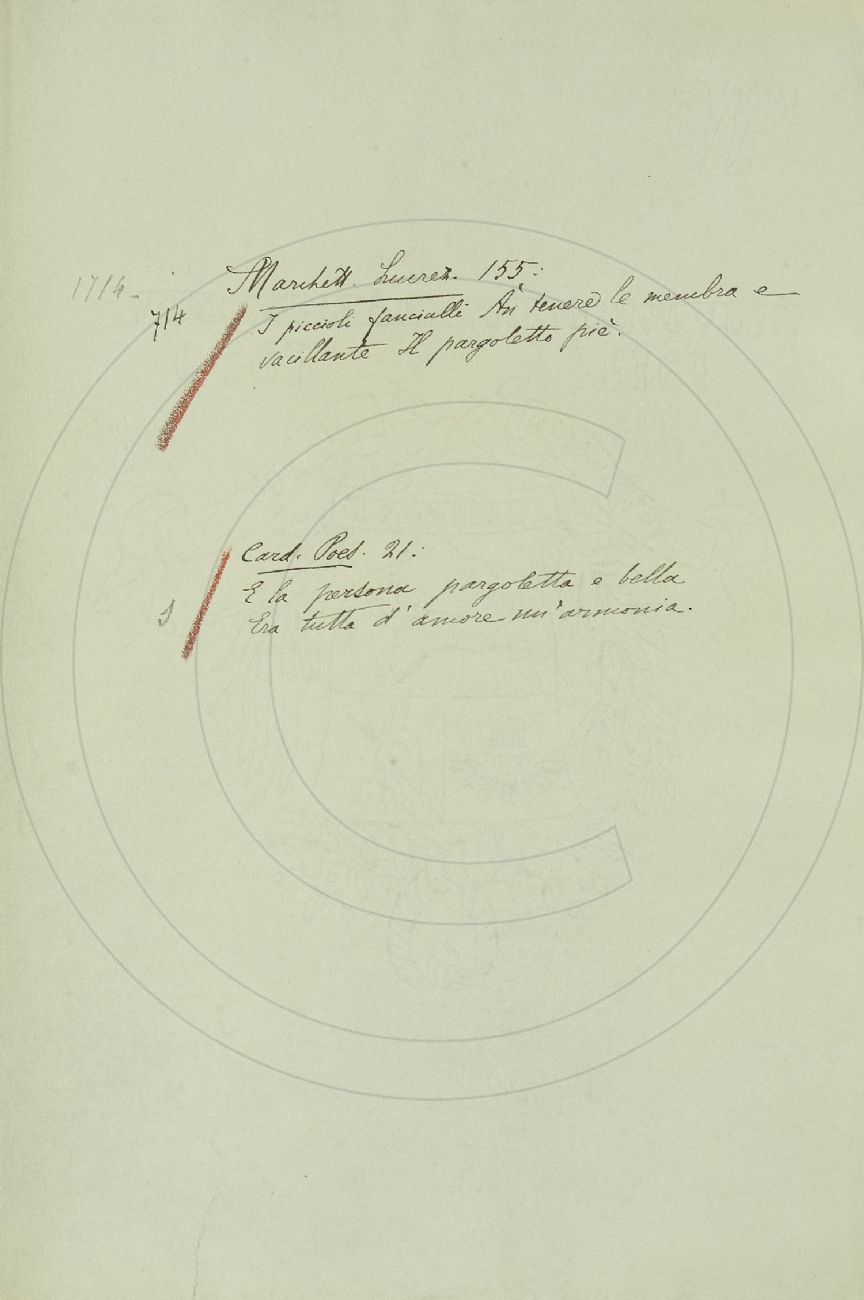 1714.
714
Marchett. Lucrez. 155:
I piccioli fanciulli An tenere le membra e
vacillante Il pargoletto piè.
Card. Poes. 21:
E la persona pargoletta e bella
Era tutta d'amore un'armonia.